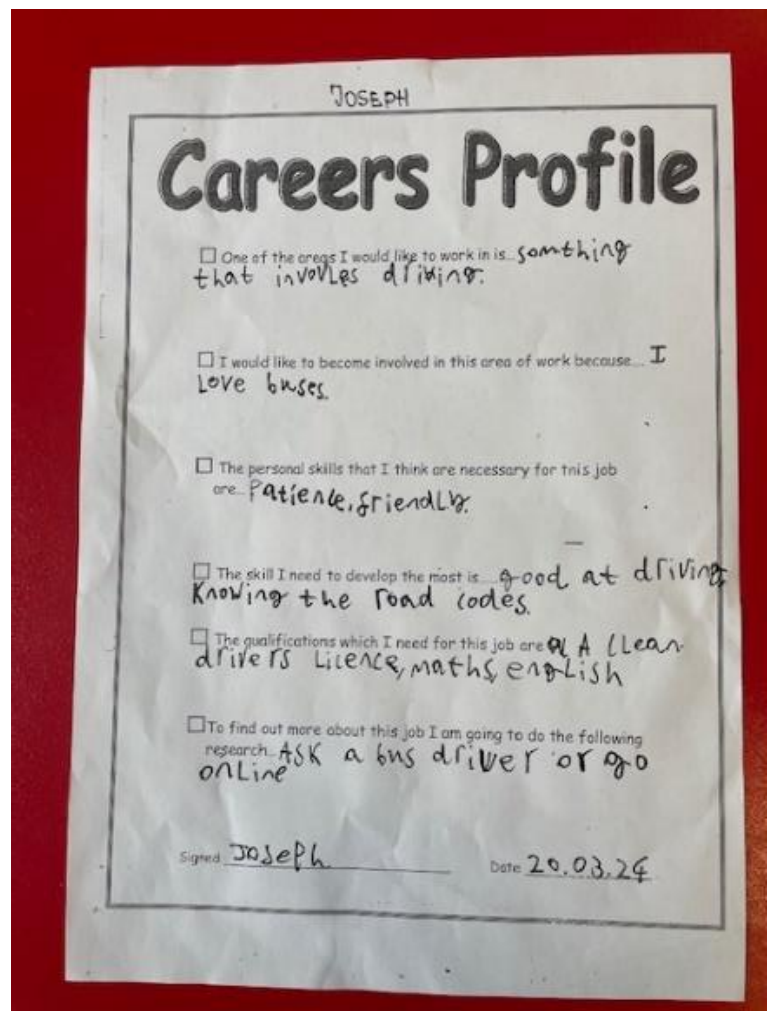 JOSEPH
Careers Profile
☐ One of the areas I would like to work in is... somthing
that invovles driving.
☐ I would like to become involved in this area of work because... I
Love buses.
☐ The personal skills that I think are necessary for this job
are... Patience, friendly.
☐ The skill I need to develop the most is... good at driving
Knowing the road codes.
☐ The qualifications which I need for this job are A Clean
drivers Licence, maths, english
☐ To find out more about this job I am going to do the following
research... ASK a bus driver or go
online
Signed Joseph Date 20.03.24